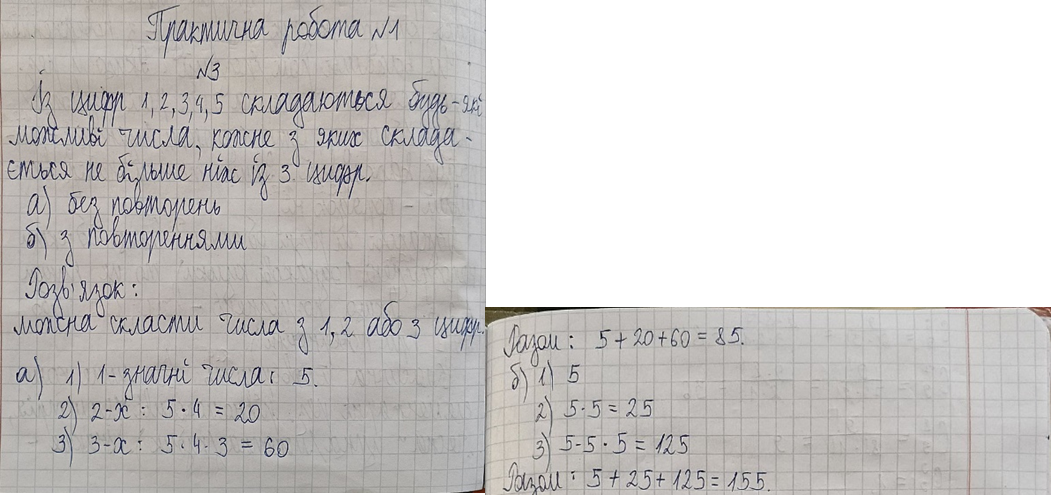 Практична робота №1
№3
Із цифр 1, 2, 3, 4, 5 складаються будь-які
можливі числа, кожне з яких склада-
ється не більше ніж із 3 цифр.
а) без повторень
б) з повтореннями
Розв'язок:
можна скласти числа з 1, 2 або 3 цифр.
а) 1) 1-значні числа: 5.
2) 2-х : 5·4 = 20
3) 3-х : 5·4·3 = 60
Разом: 5+20+60 = 85.
б) 1) 5
2) 5·5 = 25
3) 5·5·5 = 125
Разом: 5+25+125 = 155.